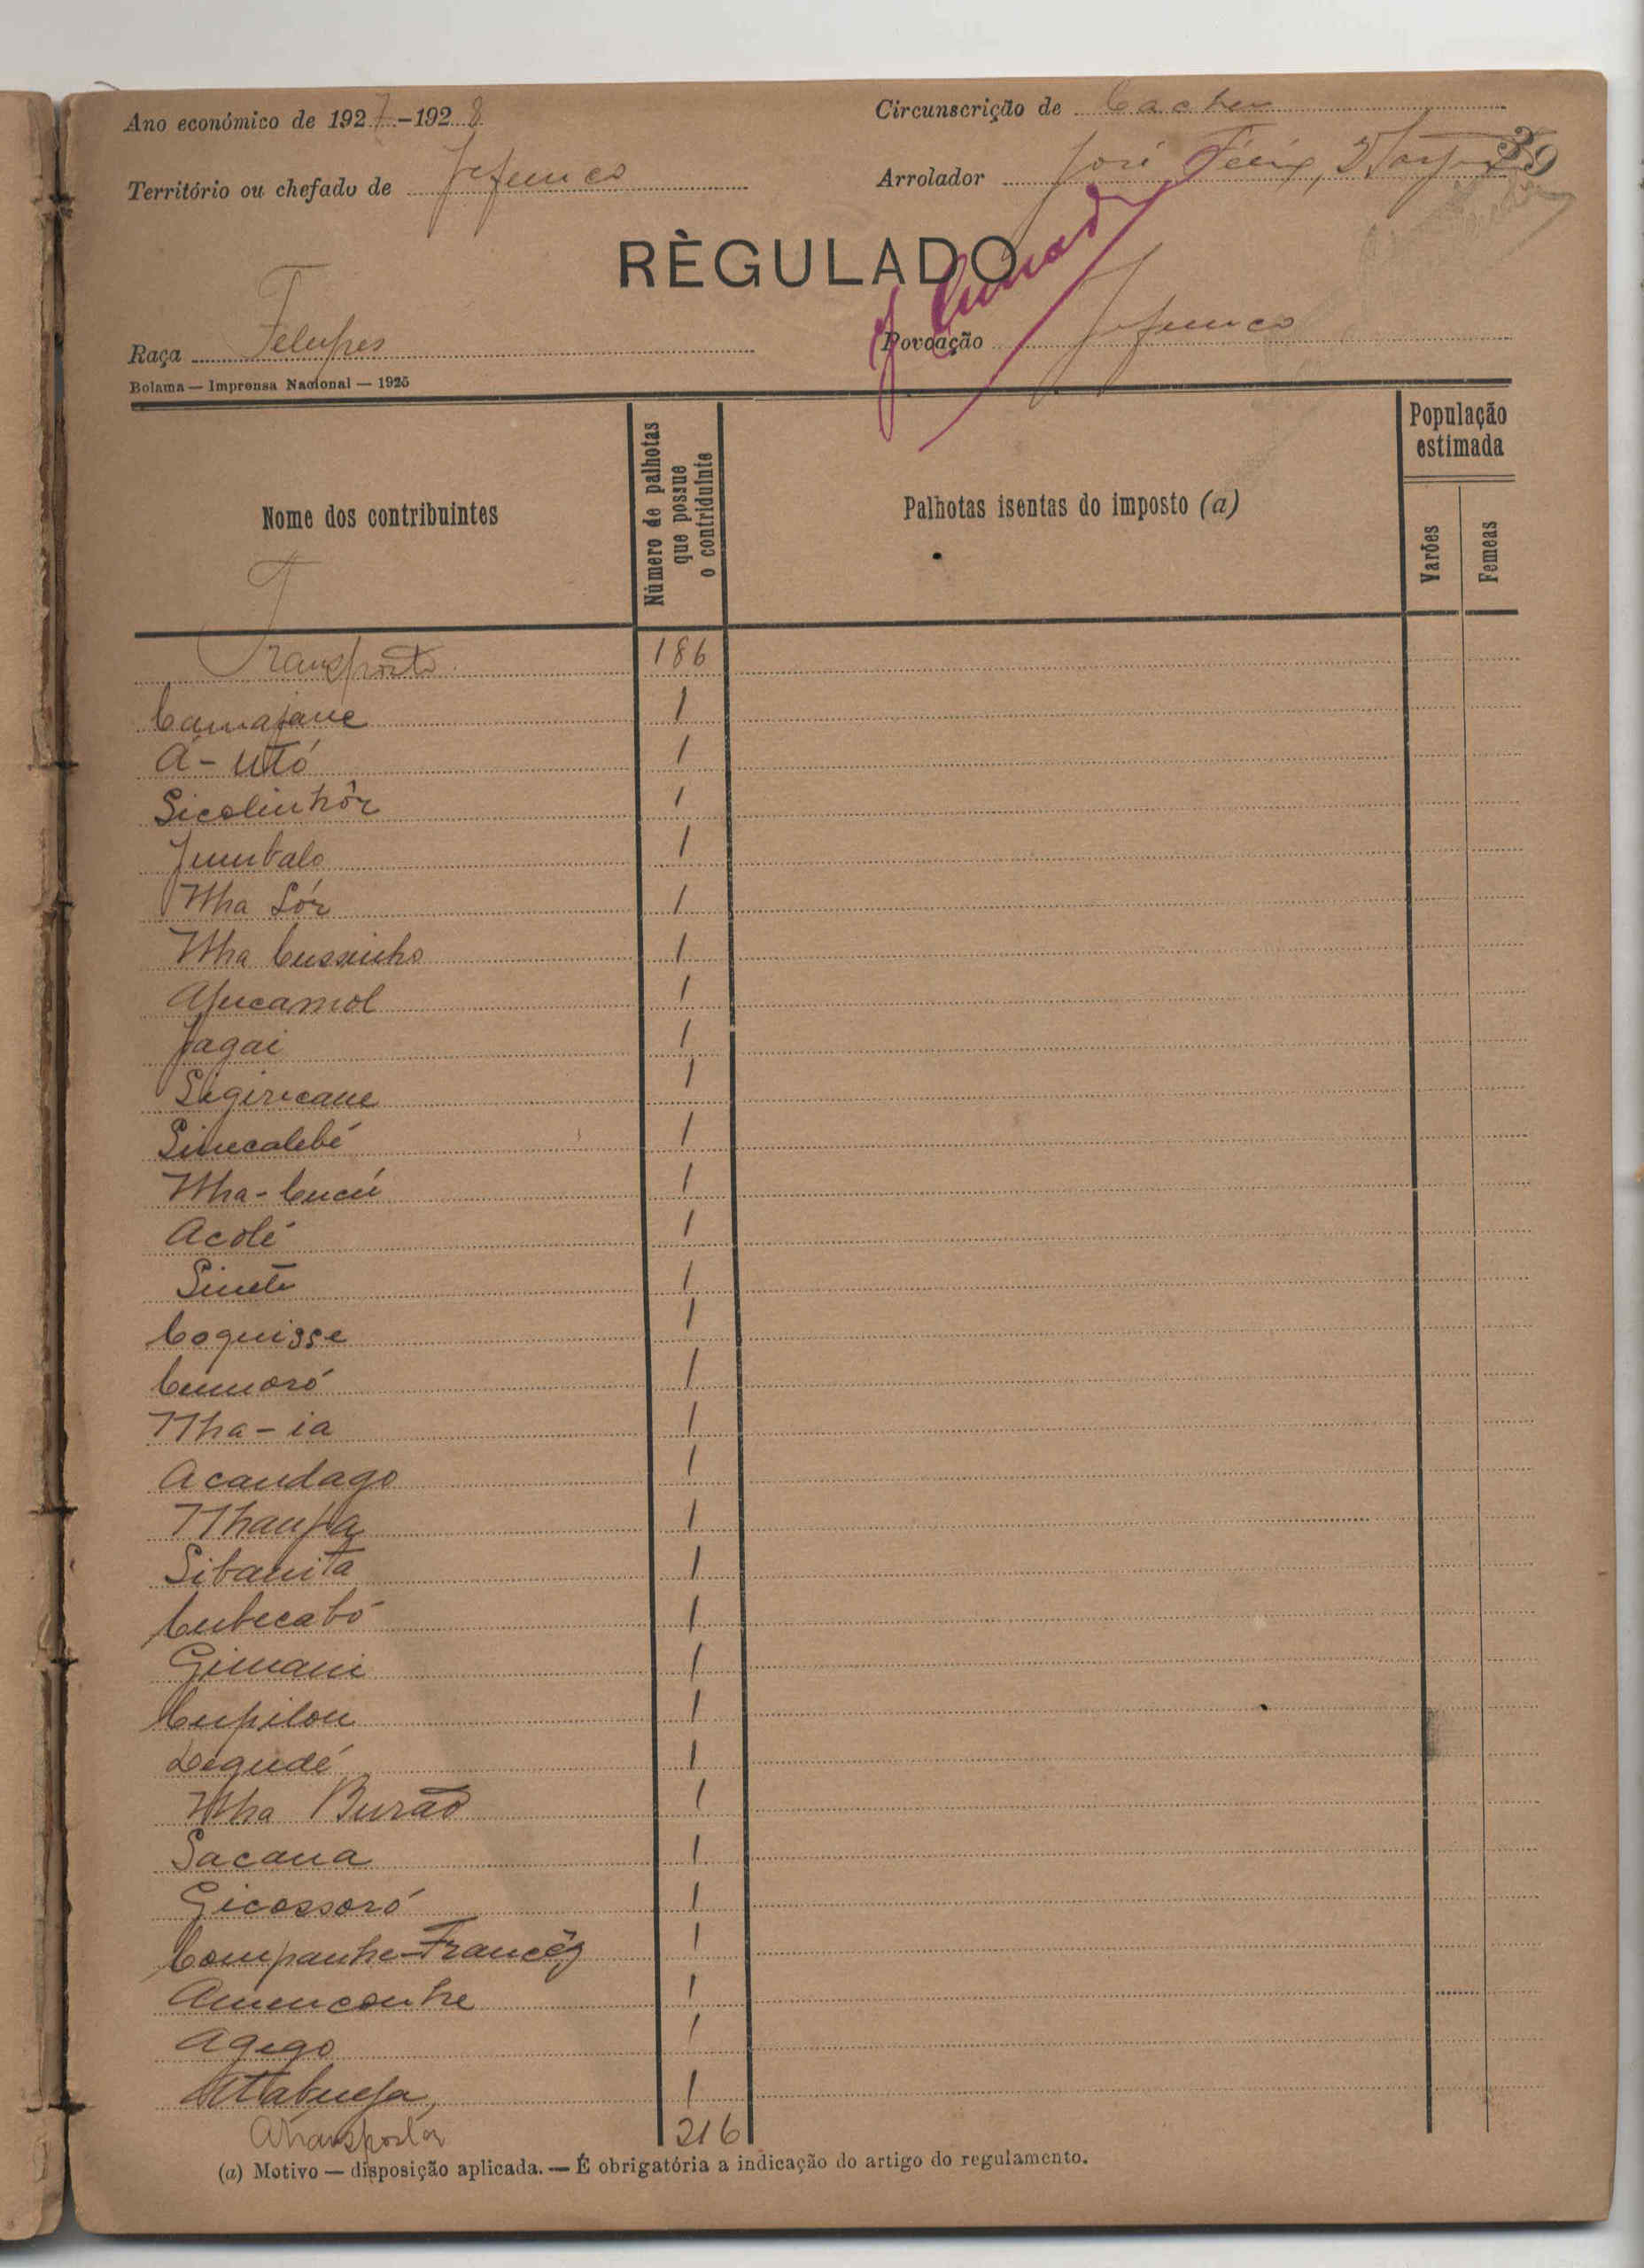 Ano económico de 1927-1928
Circunscrição de Cacheu
39
Território ou chefado de Jefunco
Arrolador José Félix,
RÈGULADO
Raça Felupes
Povoação Jefunco
Bolama — Imprensa Nacional — 1925
Nome dos contribuintes
Número de palhotas que possue o contriduinte
Palhotas isentas do imposto (a)
População estimada
Varões
Femeas
Transporte 186
Camajane 1
A-utó 1
Sicolinhôr 1
Jumbalo 1
Nha Sór 1
Nha Cussinho 1
Afucamol 1
Jagai 1
Sigiricane 1
Simecalebé 1
Nha-Cucú 1
Acolé 1
Sineti 1
Coquisse 1
Cumoró 1
Nha-ia 1
Acandago 1
Nhanfa 1
Sibanita 1
Cubecabó 1
Gimani 1
Cupilou 1
Degudé 1
Nha Burão 1
Sacana 1
Gicossoró 1
Companhe-Francêz 1
Amenconhe 1
Agego 1
Atabueja 1
A transportar 216
(a) Motivo — disposição aplicada. — É obrigatória a indicação do artigo do regulamento.